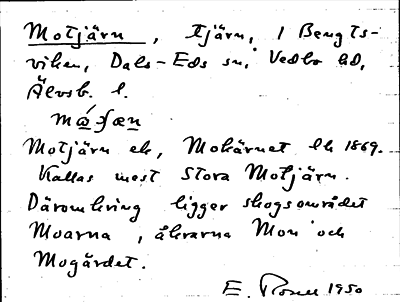 Motjärn, tjärn, i Bengts-
viken, Dals-Eds sn, Vedbo hd,
Älvsb. l.
Motjärn ek, Mokärnet lk 1869.
Kallas mest Stora Motjärn.
Däromkring ligger skogsområdet
Moarna, åkrarna Mon och
Mogärdet.
E. 1950